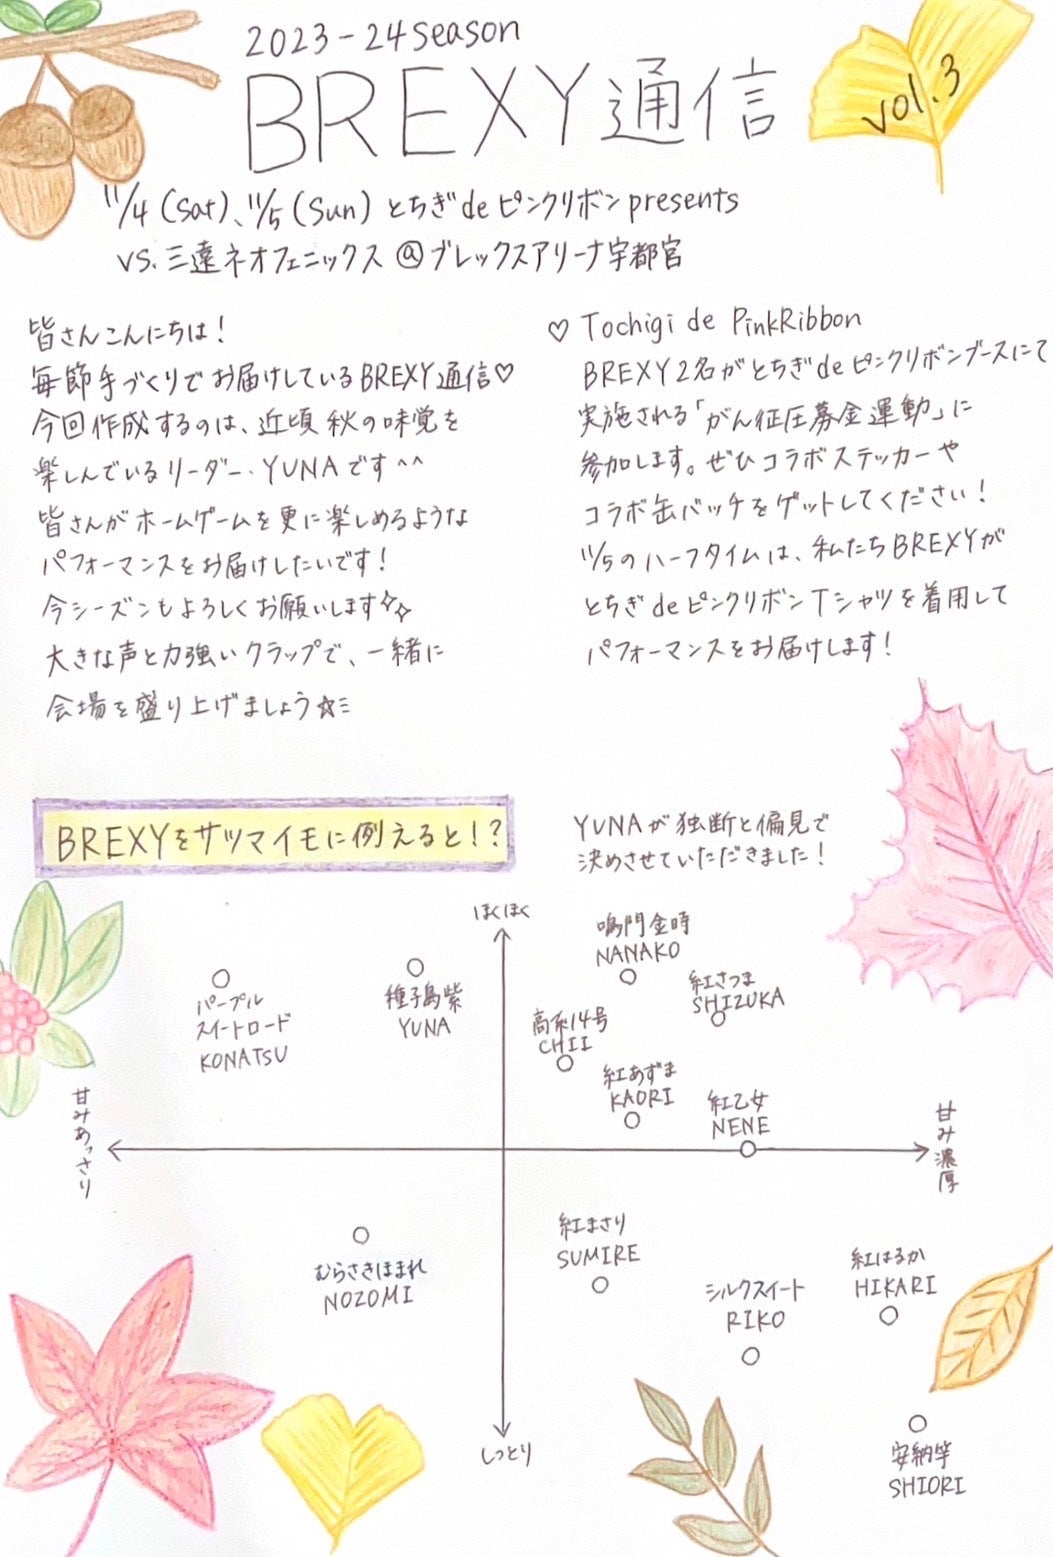 2023-24 season
BREXY通信
vol.3
11/4 (Sat)、11/5 (Sun) とちぎ de ピンクリボン presents
vs. 三遠ネオフェニックス @ブレックスアリーナ宇都宮
皆さんこんにちは！
毎節手づくりでお届けしているBREXY通信♡
今回作成するのは、近頃秋の味覚を
楽しんでいるリーダー・YUNAです^^
皆さんがホームゲームを更に楽しめるような
パフォーマンスをお届けしたいです！
今シーズンもよろしくお願いします✧✧
大きな声と力強いクラップで、一緒に
会場を盛り上げましょう☆ミ
♡ Tochigi de PinkRibbon
BREXY2名がとちぎdeピンクリボンブースにて
実施される「がん征圧募金運動」に
参加します。ぜひコラボステッカーや
コラボ缶バッチをゲットしてください！
11/5のハーフタイムは、私たちBREXYが
とちぎdeピンクリボンTシャツを着用して
パフォーマンスをお届けします！
BREXYをサツマイモに例えると！？
YUNAが独断と偏見で
決めさせていただきました！
ほくほく
鳴門金時
NANAKO
紅さつま
SHIZUKA
パープル
スイートロード
KONATSU
種子島紫
YUNA
高系14号
CHII
紅あずま
KAORI
紅乙女
NENE
甘みあっさり
甘み濃厚
むらさきほまれ
NOZOMI
紅まさり
SUMIRE
シルクスイート
RIKO
紅はるか
HIKARI
安納芋
SHIORI
しっとり